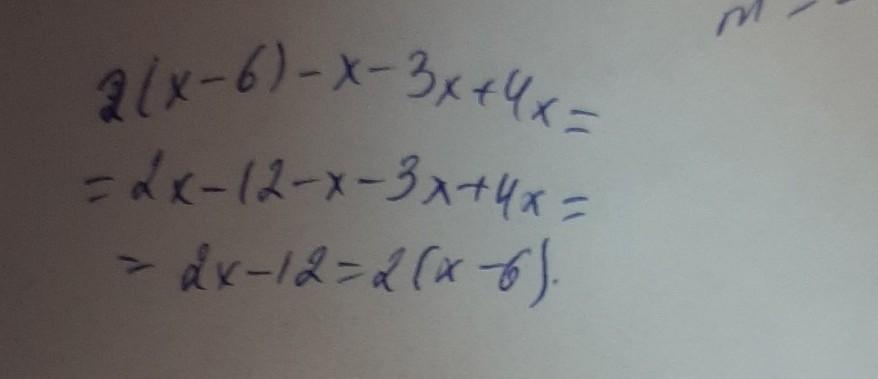 m -
2(x-6)-x-3x+4x=
=2x-12-x-3x+4x=
=2x-12=2(x-6).